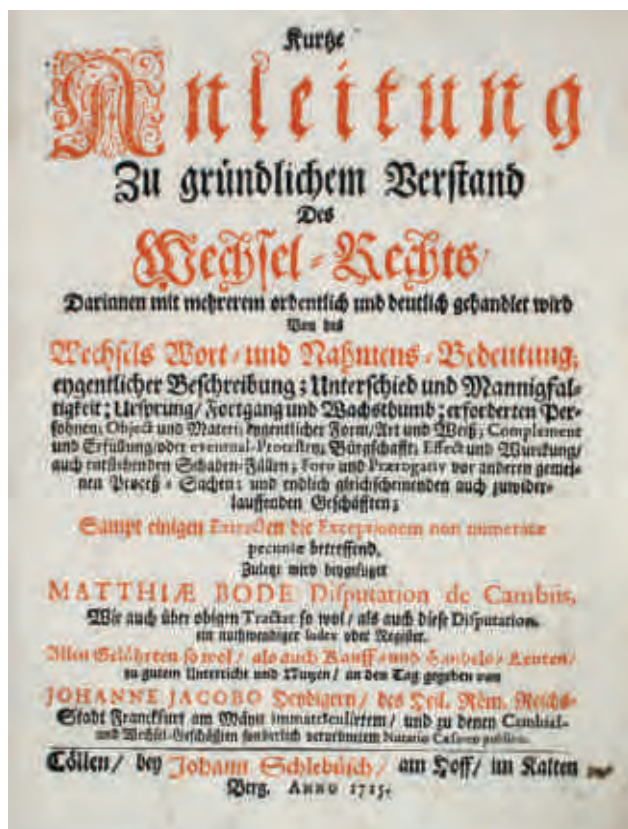 Kurtze
Anleitung
Zu gründlichem Verstand
Des
Wechsel-Rechts/
Darinnen mit mehrerem ordentlich und deutlich gehandlet wird
Von des
Wechsels Wort- und Nahmens-Bedeutung;
eygentlicher Beschreibung; Unterschied und Mannigfal-
tigkeit; Ursprung/ Fortgang und Wachsthumb; erforderten Per-
sohnen; Object und Materi; eygentlicher Form/ Art und Weiß; Complement
und Erfüllung/ oder eventual-Protesten; Bürgschafft; Effect und Würckung/
auch entstehenden Schaden-Fällen; Foro und Prærogativ vor anderen gemei-
nen Proceß-Sachen; und endlich gleichscheinenden auch zuwider-
lauffenden Geschäfften;
Sampt einigen Extracten die Exceptionem non numeratæ
pecuniæ betreffend.
Zuletzt wird beygefüget
MATTHIÆ BODE Disputation de Cambiis,
Wie auch über obigen Tractat so wol/ als auch diese Disputation.
ein nothwendiger Index oder Register.
Allen Gelährten so wol/ als auch Kauff- und Handels-Leuten/
zu gutem Unterricht und Nutzen/ an den Tag gegeben von
JOHANNE JACOBO / des Heil. Röm. Reichs-
Stadt Franckfurt am Mäyn immatriculirtem/ und zu denen Cambial-
und Wechsel-Geschäfften sonderlich verordnetem Notario Cæsareo publico.
Cöllen/ bey Johann Schlebusch/ am Hoff/ im Kalten
Berg. ANNO 1715.